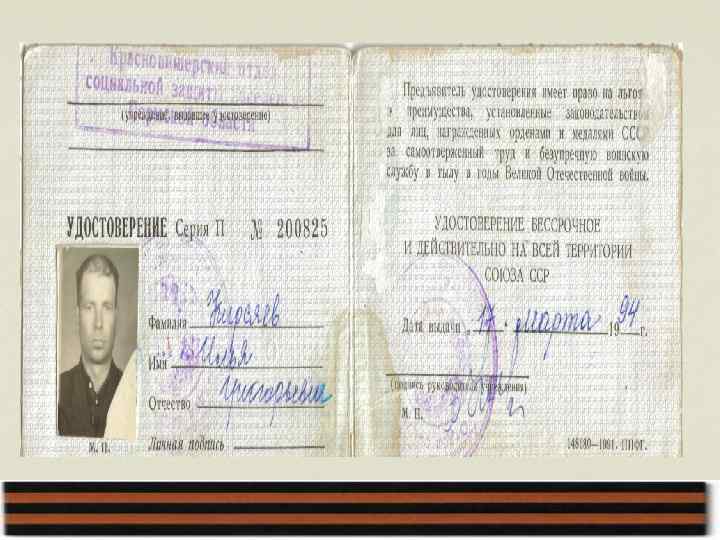 Красновишерский отдел
социальной защиты населен
Пермской области
(учреждение, выдавшее удостоверение)
УДОСТОВЕРЕНИЕ Серия П № 200825
Фамилия Кирьяев
Имя Илья
Отчество Григорьевич
М. П. Личная подпись
Предъявитель удостоверения имеет право на льготы
и преимущества, установленные законодательством
для лиц, награжденных орденами и медалями СССР
за самоотверженный труд и безупречную воинскую
службу в тылу в годы Великой Отечественной войны.
УДОСТОВЕРЕНИЕ БЕССРОЧНОЕ
И ДЕЙСТВИТЕЛЬНО НА ВСЕЙ ТЕРРИТОРИИ
СОЮЗА ССР
Дата выдачи „17" марта 1994 г.
(подпись руководителя учреждения)
М. П.
148180—1991. ППФГ.